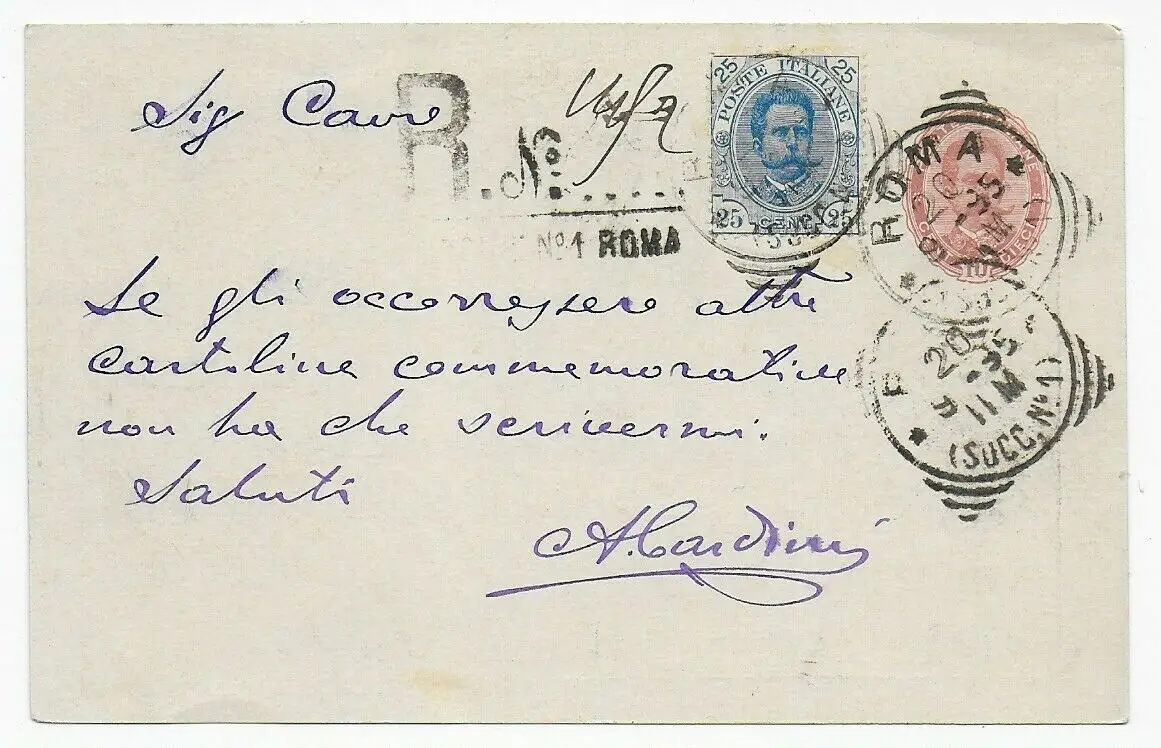 Sig Cave
R. No
No1 ROMA
25 25
POSTE ITALIANE
25 CENT 25
ROMA
20
9-95
10 M
DIECI
10
20
9-95
11 M
(SUCC. No1)
Se gli occorressero altre
cartoline commemorative
non ha che scrivermi.
Saluti
A. Cardini